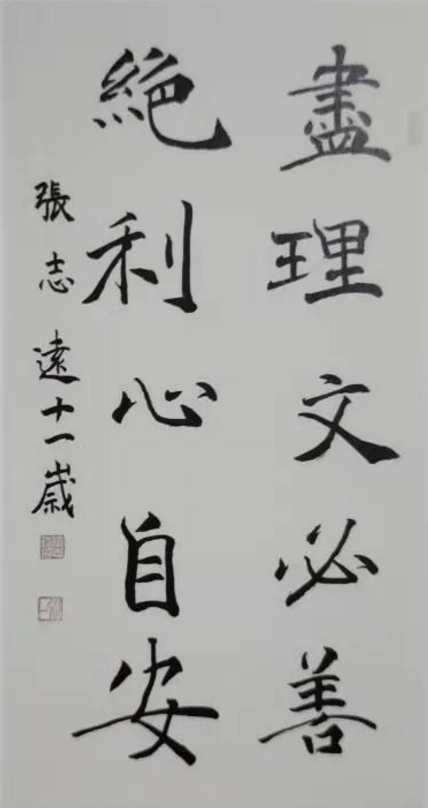 盡理文必善
絕利心自安
張志遠十一歲